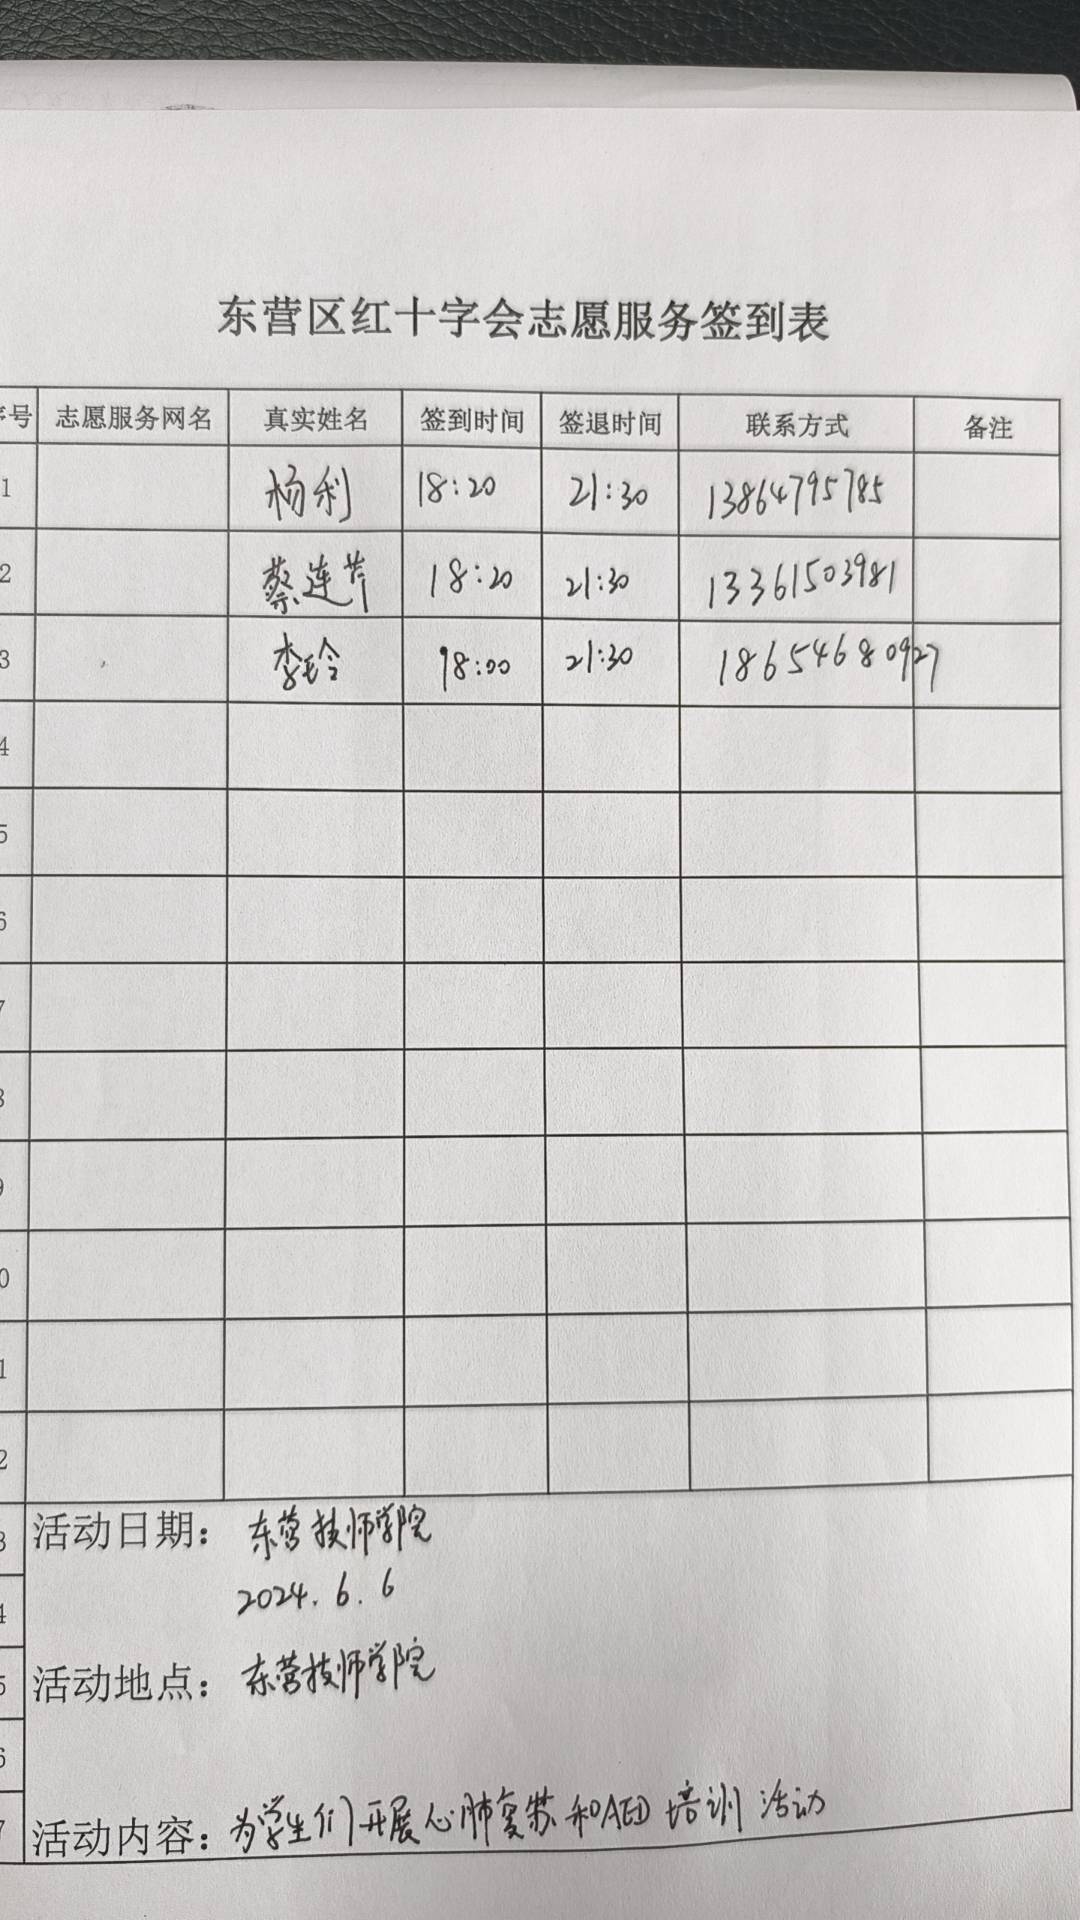 东营区红十字会志愿服务签到表
序号 志愿服务网名 真实姓名 签到时间 签退时间 联系方式 备注
1 杨利 18:20 21:30 13864795785
2 蔡连芹 18:20 21:30 13361503981
3 李玲 18:00 21:30 18654680927
4
5
6
7
8
9
0
1
2
3 活动日期： 东营技师学院
4 2024.6.6
5 活动地点： 东营技师学院
6
7 活动内容： 为学生们开展心肺复苏和AED培训活动